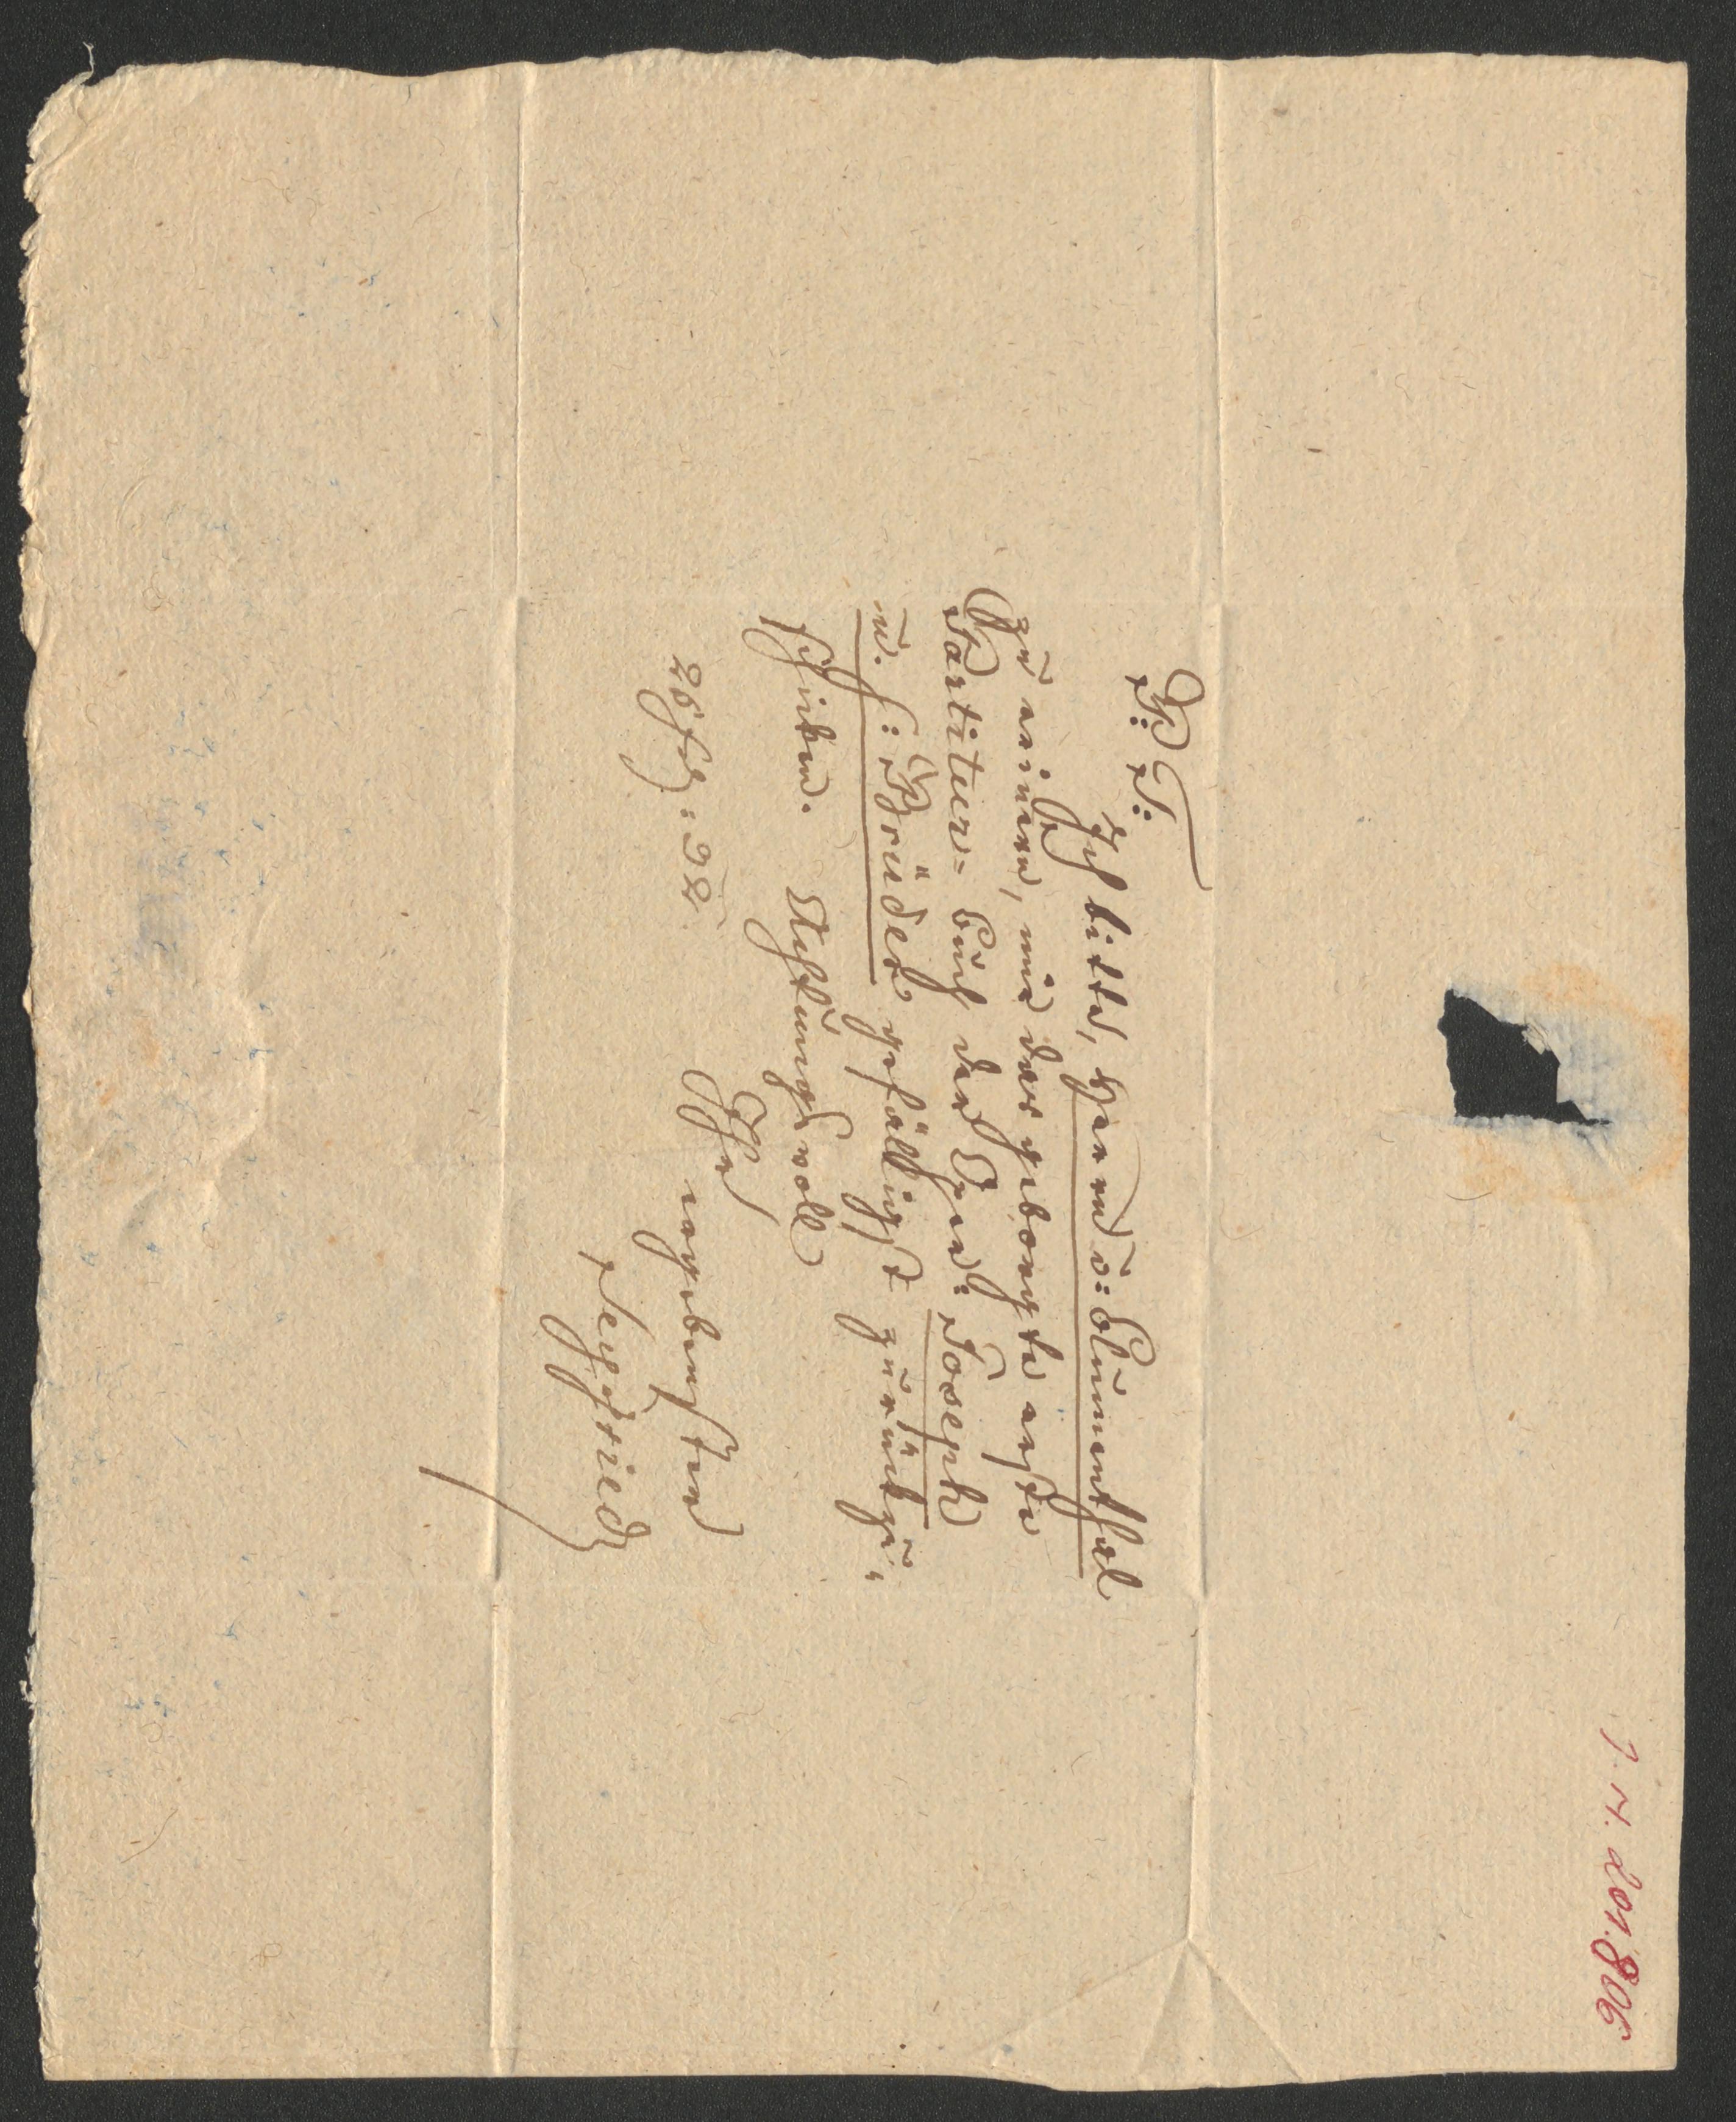 I. N. 201.806
P: T:
Ich bitte, Herrn v: Blumenthal
zu erinern, mir das geborgte erste
Partitur-Buch der Oper: Joseph
u. s: Brüder gefälligst zurückzu-
schicken. Achtungsvoll
Ihr
ergebenster
Seyfried